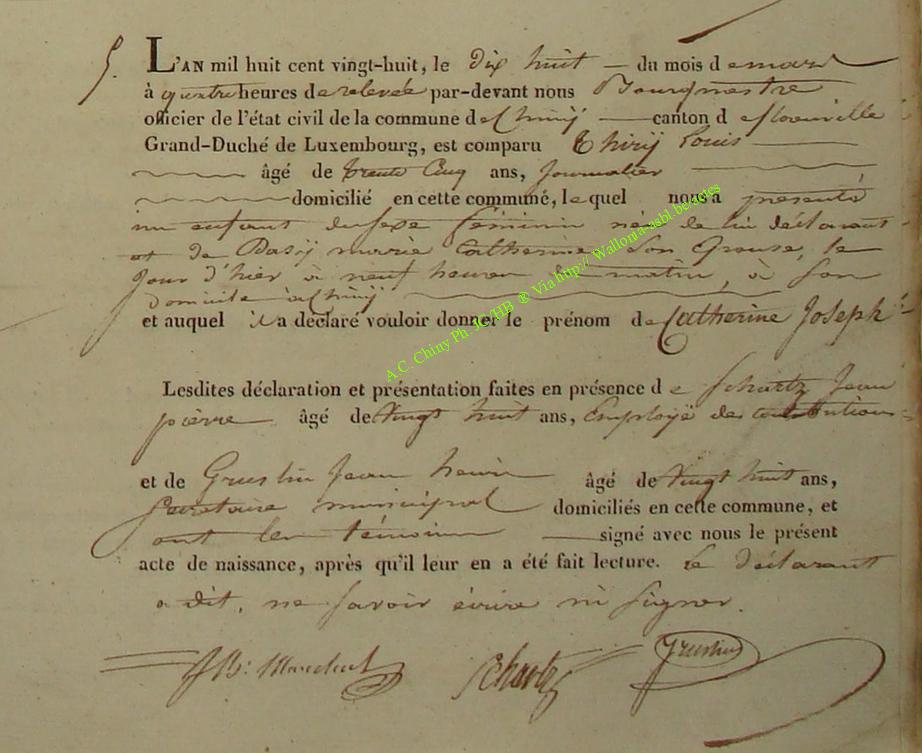 5. L'AN mil huit cent vingt-huit, le dix huit du mois de mars
à quatre heures de relevée par-devant nous Bourgmestre
officier de l'état civil de la commune de Chinÿ canton d'florenville
Grand-Duché de Luxembourg, est comparu Thirÿ Louis
âgé de trente Cinq ans, journalier
domicilié en cette commune, lequel nous a presenté
un enfant du sexe féminin née de lui déclarant
et de Dasÿ marie Catherine Son Epouse, le
jour d'hier à neuf heures du matin, à Son
domicile à Chinÿ
et auquel il a déclaré vouloir donner le prénom de Catherine Joseph
Lesdites déclaration et présentation faites en présence de Schartz Jean
pierre âgé de vingt huit ans, Employé des contributions
et de Gruslin Jean henri âgé de vingt huit ans,
Secretaire municipal domiciliés en cette commune, et
ont les témoins signé avec nous le présent
acte de naissance, après qu'il leur en a été fait lecture. Le déclarant
a dit, ne savoir écrire ni signer.
Schartz Gruslin
A.C. Chiny Ph. JC/HB ® Via http:// Wallonia-asbl.be/actes